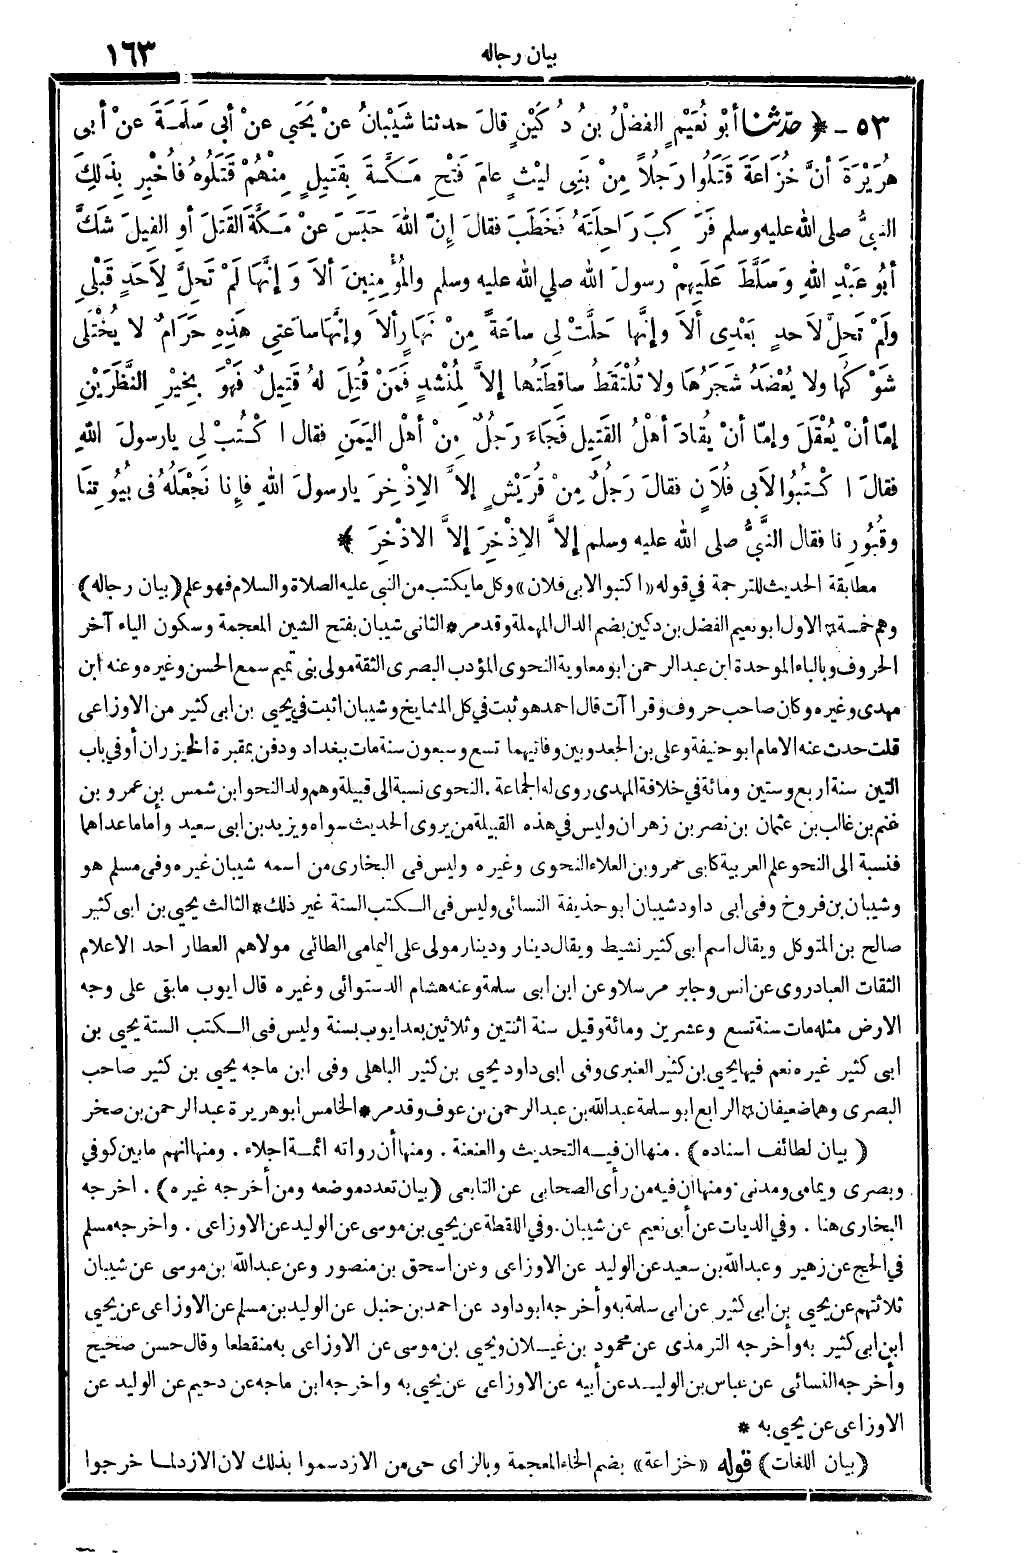 بيان رجاله ١٦٣
٥٣ - ﴿ حدّثنا أبُو نُعَيْمٍ الفضْلُ بنُ دُ كَيْنٍ قالَ حدثنا شَيْبانُ عنْ يَحَيى عنْ أبى سَلَمَةَ عنْ أبى
هُرَيْرَةَ أنَّ خُزَاعَةَ قَتَلُوا رَجُلاً مِنْ بَنِى ليْثٍ عامَ فَتْحِ مَكَّةَ بِقَتِيلٍ مِنْهُمْ قَتَلُوهُ فأُخْبِرَ بِذَلِكَ
النبيُّ صلى الله عليه وسلم فَرَ كِبَ رَ احِلَتَهُ فَخَطَبَ فقالَ إِنَّ اللهَ حَبَسَ عنْ مَكَّةَ القَتلَ أو الفِيلَ شَكَّ
أبُو عَبْدِ اللهِ وَسَلَّطَ عَلَيهِمْ رسولَ الله صلي الله عليه وسلم والمُؤْمِنِينَ ألاَ وَ إِنَّها لَمْ تَحِلَّ لِاَحَدٍ قَبْلِى
ولَمْ تَحِلَّ لاَحدٍ بَعْدِى ألاَ وإِنَّها حَلَّتْ لِى ساعَةً مِنْ نَهارٍ ألاَ وإنَّها ساعَتِى هَذِهِ حَرَامٌ لا يُخْتَلَى
شَوْ كُها ولا يُعْضَدُ شَجَرُها ولا تُلْتَقَطُ ساقِطَتُها إِلاَّ لِمُنْشِدٍ فَمَنْ قُتِلَ لهُ قَتِيلٌ فَهْوَ بِخَيْرِ النَّظَرَيْنِ
إمّا أنْ يُعْقَلَ وإمّا أنْ يُقادَ أهْلُ القَتِيلِ فَجَاءَ رَجُلٌ مِنْ أهْلِ اليَمَنِ فقال ا كْتُبْ لِى يارسولَ اللهِ
فقالَ ا كْتبُوا لاَبى فُلاَنٍ فقالَ رَجُلٌ مِنْ قُرَيْشٍ إلاَّ الإِذْخِرَ يارسولَ اللهِ فإِنا نَجْعَلُهُ فى بُيُوتِنا
وقُبُورِ نا فقال النَّبيُّ صلى الله عليه وسلم إلاَّ الاِذْخِرَ إلاَّ الاذْخِرَ ﴾
مطابقة الحديث للترجمة في قوله «ا كتبوا لابى فلان» وكل ما يكتب من النبى عليه الصلاة والسلام فهو علم (بيان رجاله)
وهم خمسة * الاول ابو نعيم الفضل بن دكين بضم الدال المهملة وقد مر * الثانى شيبان بفتح الشين المعجمة وسكون الياء آخر
الحروف وبالباء الموحدة ابن عبد الرحمن ابو معاوية النحوى المؤدب البصرى الثقة مولى بنى تميم سمع الحسن وغيره وعنه ابن
مهدى وغيره وكان صاحب حروف وقرا آت قال احمد هو ثبت في كل المشايخ وشيبان اثبت في يحيى بن ابى كثير من الاوزاعى
قلت حدث عنه الامام ابو حنيفة وعلى بن الجعد وبين وفاتيهما تسع وسبعون سنة مات ببغداد ودفن بمقبرة الخيزران أو في باب
التين سنة اربع وستين ومائة في خلافة المهدى روى له الجماعة . النحوى نسبة الى قبيلة وهم ولد النحو ابن شمس بن عمرو بن
غنم بن غالب بن عثمان بن نصر بن زهران وليس في هذه القبيلة من يروى الحديث سواه ويزيد بن ابى سعيد وأما ما عداهما
فنسبة الى النحو علم العربية كابى عمرو بن العلاء النحوى وغيره وليس فى البخارى من اسمه شيبان غيره وفى مسلم هو
وشيبان بن فروخ وفى ابى داود شيبان ابو حذيفة النسائى وليس فى الكتب الستة غير ذلك * الثالث يحيى بن ابى كثير
صالح بن المتوكل ويقال اسم ابى كثير نشيط ويقال دينار ودينار مولى على اليمامى الطائى مولاهم العطار احد الاعلام
الثقات العباد روى عن انس وجابر مرسلا وعن ابن ابى سلمة وعنه هشام الدستوائى وغيره قال ايوب ما بقى على وجه
الارض مثله مات سنة تسع وعشرين ومائة وقيل سنة اثنتين وثلاثين بعد ايوب بسنة وليس فى الكتب الستة يحيى بن
ابى كثير غيره نعم فيها يحيى بن كثير العنبرى وفى ابى داود يحيى بن كثير الباهلى وفى ابن ماجه يحيى بن كثير صاحب
البصرى وهما ضعيفان * الرابع ابو سلمة عبد الله بن عبد الرحمن بن عوف وقد مر * الخامس ابو هريرة عبد الرحمن بن صخر
( بيان لطائف اسناده ) . منها ان فيه التحديث والعنعنة . ومنها أن رواته ائمة اجلاء . ومنها انهم ما بين كوفي
وبصرى ويمامى ومدنى . ومنها ان فيه من رأى الصحابى عن التابعى (بيان تعدد موضعه ومن أخرجه غيره) . اخرجه
البخارى هنا . وفي الديات عن أبى نعيم عن شيبان . وفي اللقطة عن يحيى بن موسى عن الوليد عن الاوزاعى . واخرجه مسلم
في الحج عن زهير وعبد الله بن سعيد عن الوليد عن الاوزاعى وعن اسحق بن منصور وعن عبد الله بن موسى عن شيبان
ثلاثتهم عن يحيى بن ابى كثير عن ابى سلمة به وأخرجه ابو داود عن احمد بن حنبل عن الوليد بن مسلم عن الاوزاعى عن يحيى
ابن ابى كثير به وأخرجه الترمذى عن محمود بن غيلان ويحيى بن موسى عن الاوزاعى به منقطعا وقال حسن صحيح
وأخرجه النسائى عن عباس بن الوليد عن أبيه عن الاوزاعى عن يحيى به واخرجه ابن ماجه عن دحيم عن الوليد عن
الاوزاعى عن يحيى به *
(بيان اللغات) قوله «خزاعة» بضم الخاء المعجمة وبالزاى حى من الازد سموا بذلك لان الازد لما خرجوا